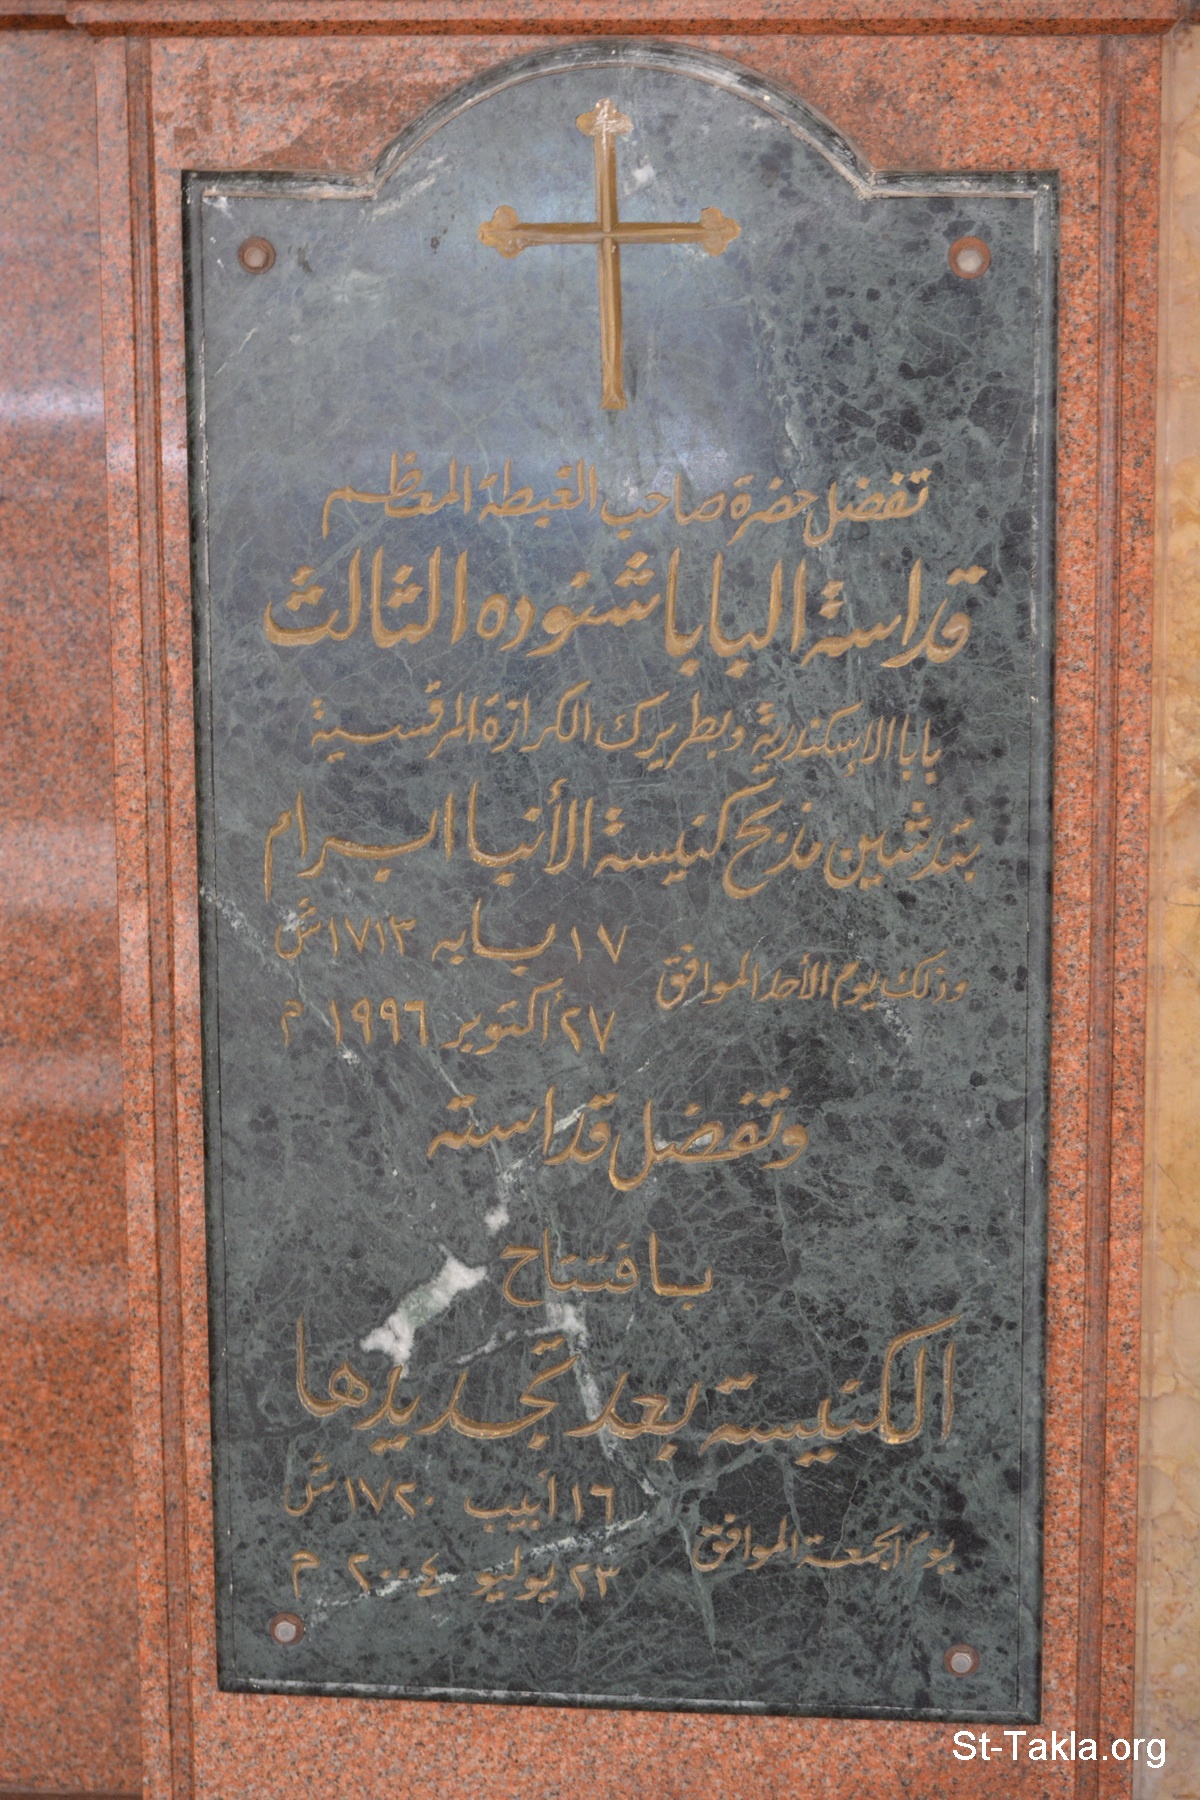 تفضل حضرة صاحب الغبطة المعظم
قداسة البابا شنوده الثالث
بابا الإسكندرية وبطريرك الكرازة المرقسية
بتدشين مذبح كنيسة الأنبا ابرام
وذلك يوم الأحد الموافق
١٧ بابه ١٧١٣ ش
٢٧ أكتوبر ١٩٩٦ م
وتفضل قداسته
بافتتاح
الكنيسة بعد تجديدها
يوم الجمعة الموافق
١٦ أبيب ١٧٢٠ ش
٢٣ يوليو ٢٠٠٤ م
St-Takla.org